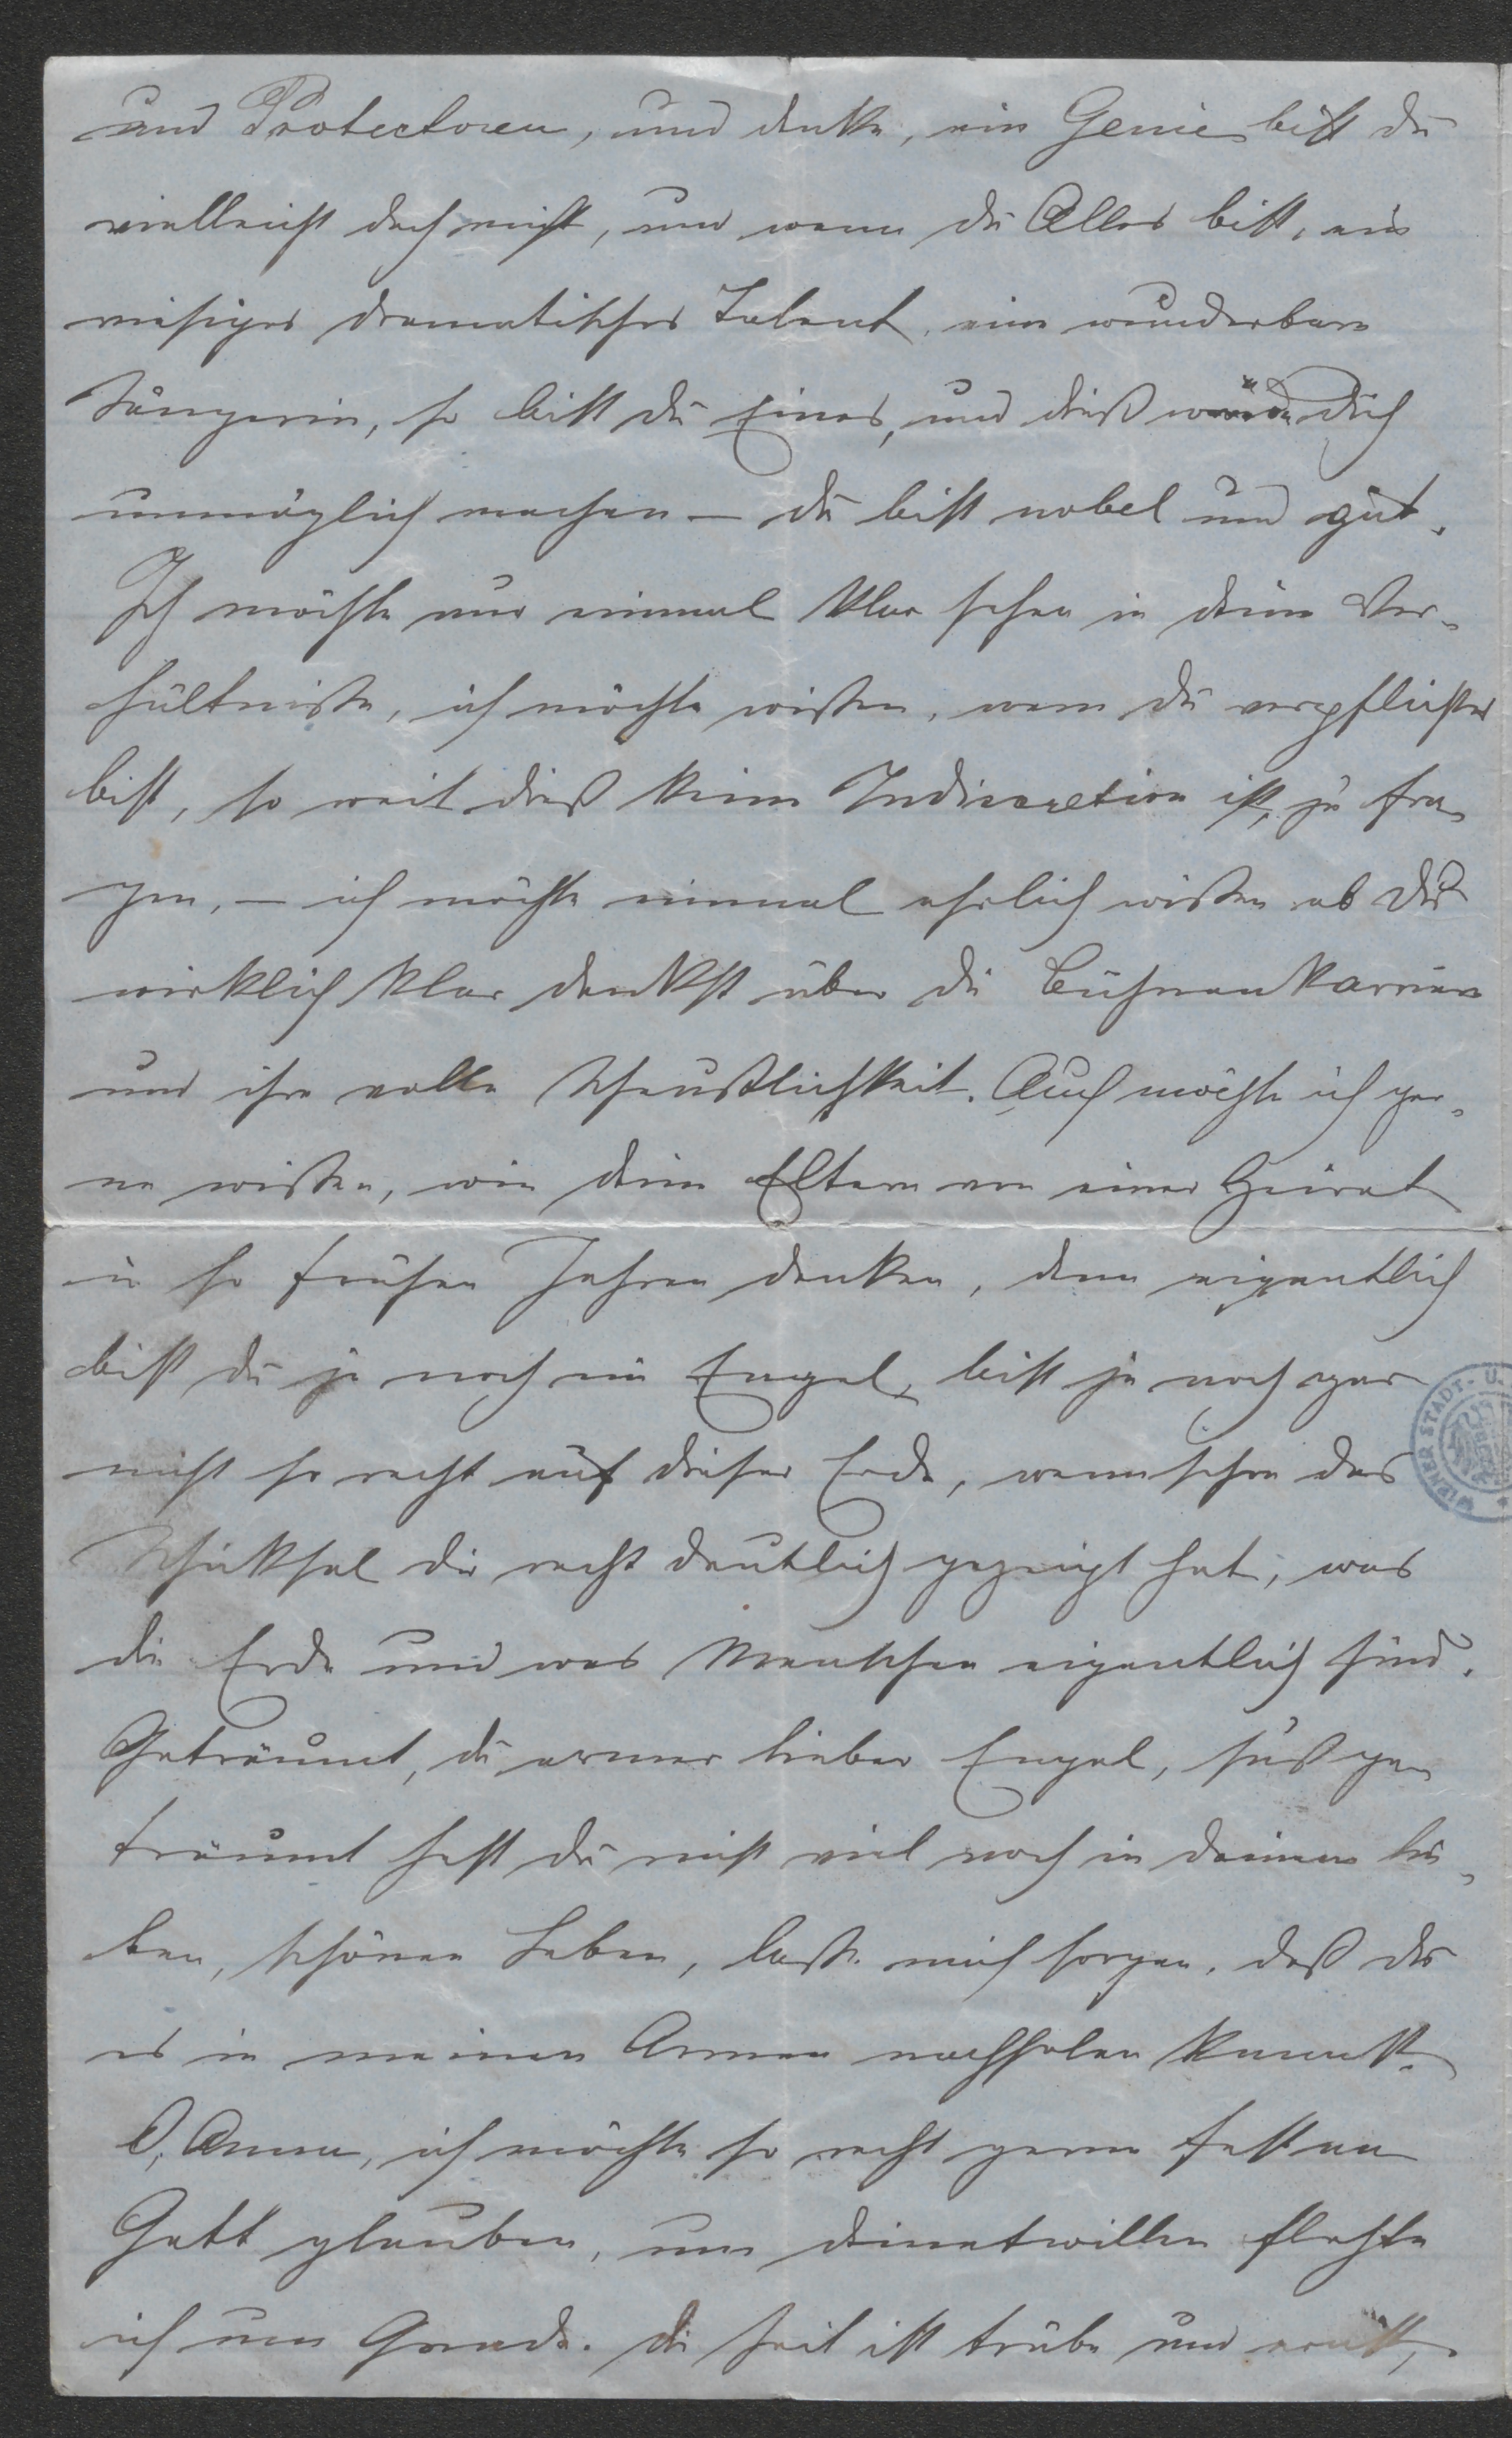 und Protectoren, und denke, ein Genie bist du
vielleicht doch nicht, und wenn du Alles bist, ein
riesiges dramatisches Talent, eine wunderbare
Sängerin, so bist du Eines, und dieß würde dich
unmöglich machen – du bist nobel und gut.
Ich möchte nur einmal klar sehen in deine Ver-
hältnisse, ich möchte wissen, wem du verpflichtet
bist, so weit dieß keine Indiscretion ist, zu fra-
gen, – ich möchte einmal ehrlich wissen ob du
wirklich klar denkst über die Bühnenkarriere
und ihre volle Scheußlichkeit. Auch möchte ich ger-
ne wissen, wie deine Eltern von einer Heirat
in so frühen Jahren denken, denn eigentlich
bist du ja noch ein Engel, bist ja noch gar
nicht so recht auf dieser Erde, wennschon das
Schicksal dir recht deutlich gezeigt hat, was
die Erde und was Menschen eigentlich sind.
Geträumt, du armer lieber Engel, süß ge-
träumt hast du nicht viel noch in deinem lie-
ben, schönen Leben, lasse mich sorgen, daß du
es in meinen Armen nachholen kannst.
O, Anna, ich möchte so recht gerne fest an
Gott glauben, um deinetwillen flehte
ich um Gnade. Die Zeit ist trübe und ernst,
WIENER STADT- U.